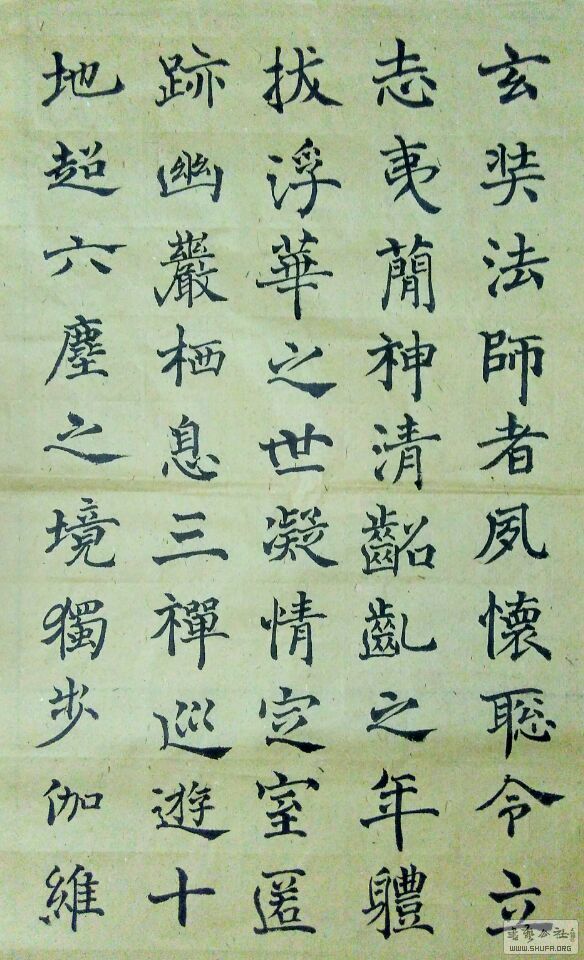 玄奘法師者夙懷聡令立
志夷蕳神清齠齓之年軆
拔浮華之世凝情定室匿
跡幽巖栖息三禪巡遊十
地超六塵之境獨步伽維
WWW.SHUFA.ORG